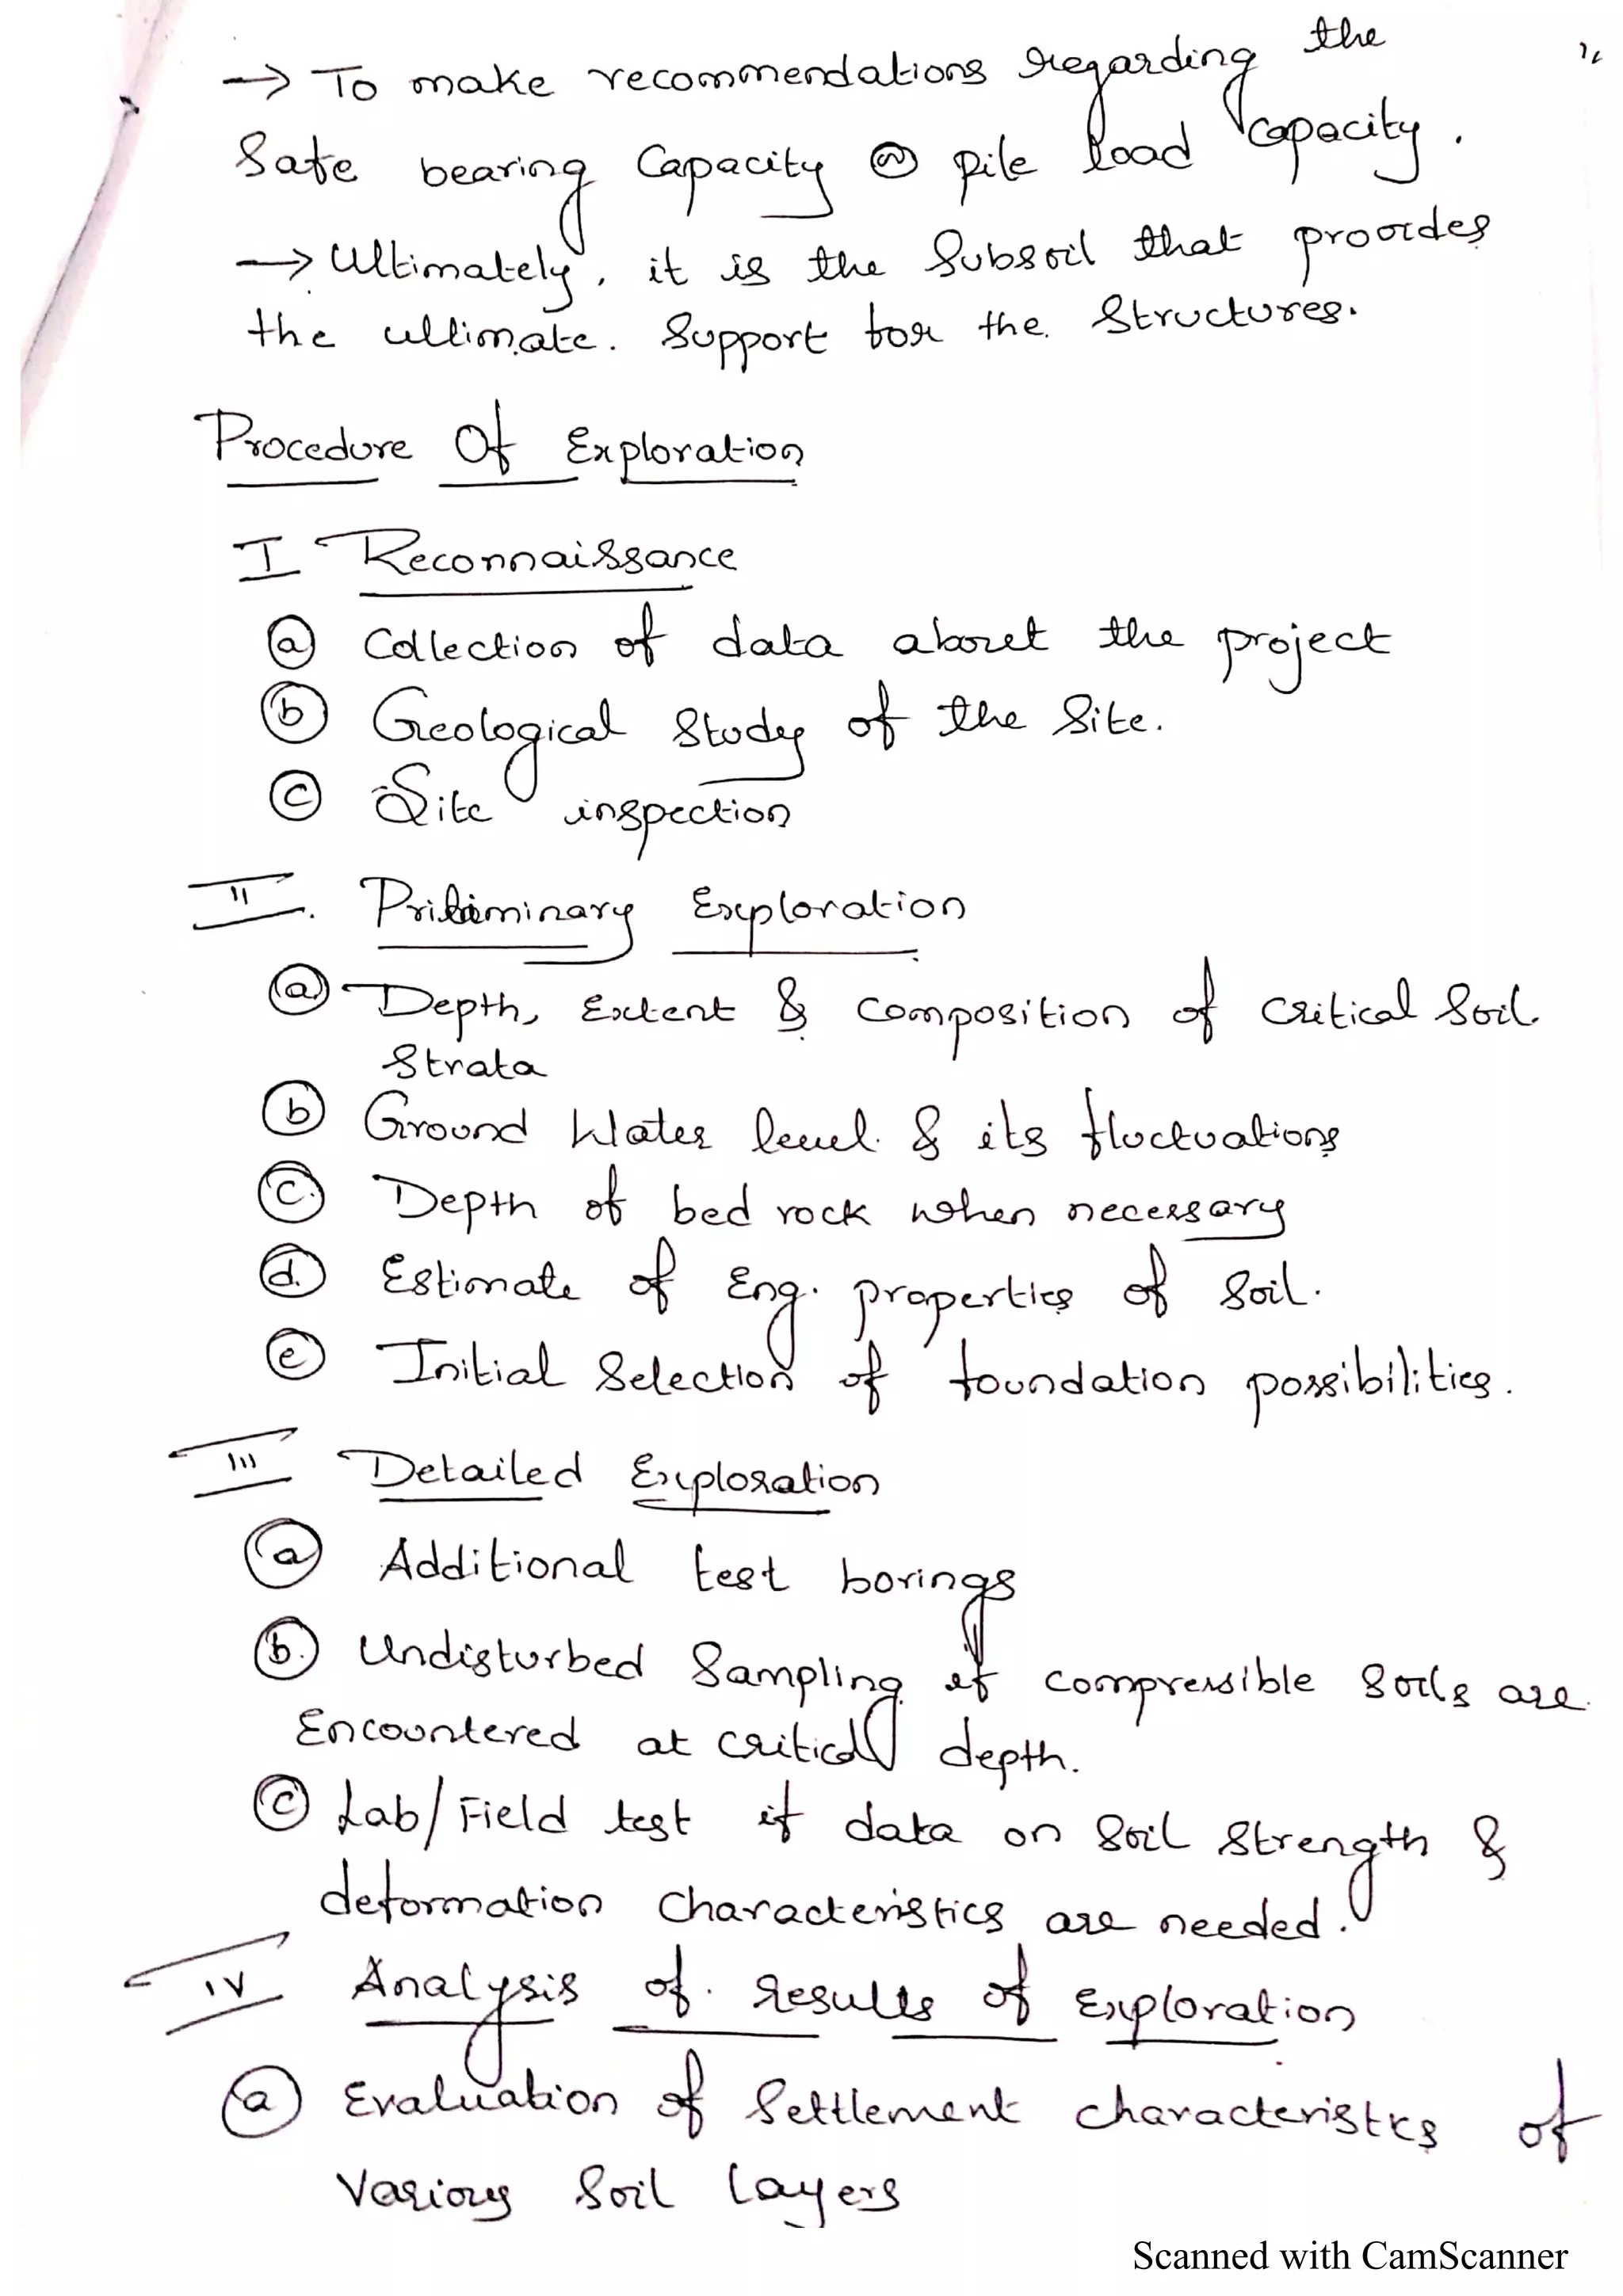 → To make recommendations regarding the
Safe bearing Capacity (or) pile load capacity.
→ Ultimately, it is the Subsoil that provides
the ultimate. Support for the. Structures.
Procedure Of Exploration
I Reconnaissance
(a) Collection of data about the project
(b) Geological Study of the Site.
(c) Site inspection
II. Priliminary Exploration
(a) Depth, Extent & composition of critical Soil.
Strata
(b) Ground Water level. & its fluctuations
(c.) Depth of bed rock when necessary
(d.) Estimate of Eng. properties of Soil.
(e) Initial Selection of foundation possibilities.
III Detailed Exploration
(a) Additional test borings
(b.) Undisturbed Sampling if compressible Soils are.
Encountered at critical depth.
(c) Lab/Field test if data on Soil Strength &
deformation characteristics are needed.
IV Analysis of. results of Exploration
(a) Evaluation of Settlement characteristics of
Various Soil Layers
Scanned with CamScanner